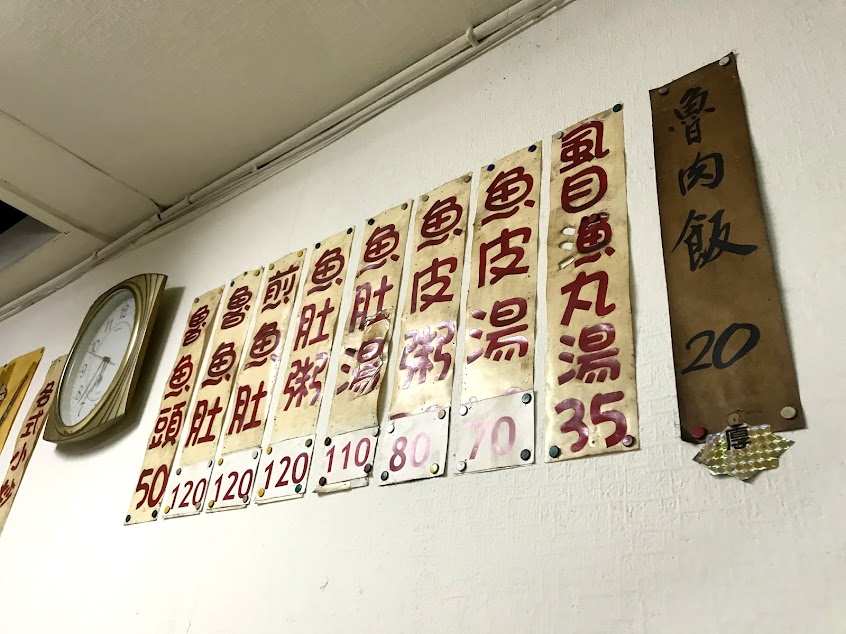 魯肉飯 20
虱目漁丸湯 35
魚皮湯 70
魚皮粥 80
魚肚湯 110
魚肚粥 120
煎魚肚 120
魯魚肚 120
魯魚頭 50